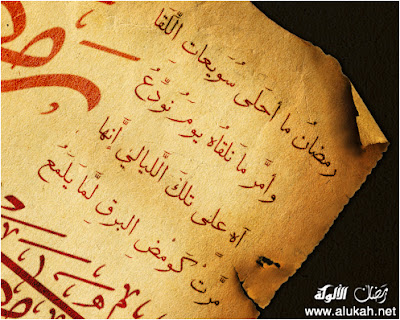 رمضانُ ما أحلى سويعات اللَّقا
وأمَّر ما نلقاه يومَ نودِّعُ
آه على تلكَ اللَّيالي إنَّها
مرَّتْ كَومْضِ البرقِ لَمَّا يلمَعِ
رمضان الألوكة
www.alukah.net